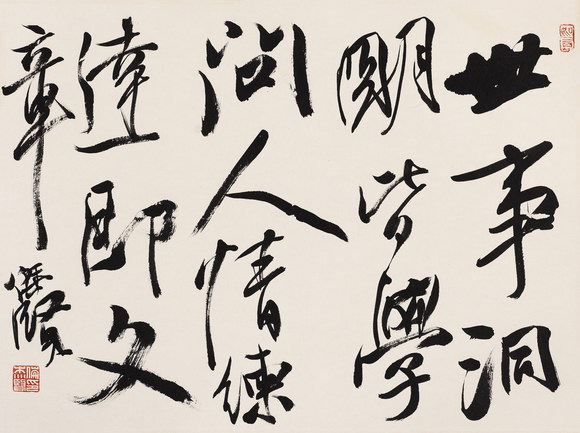 世事洞
明皆學
問人情練
達即文
章